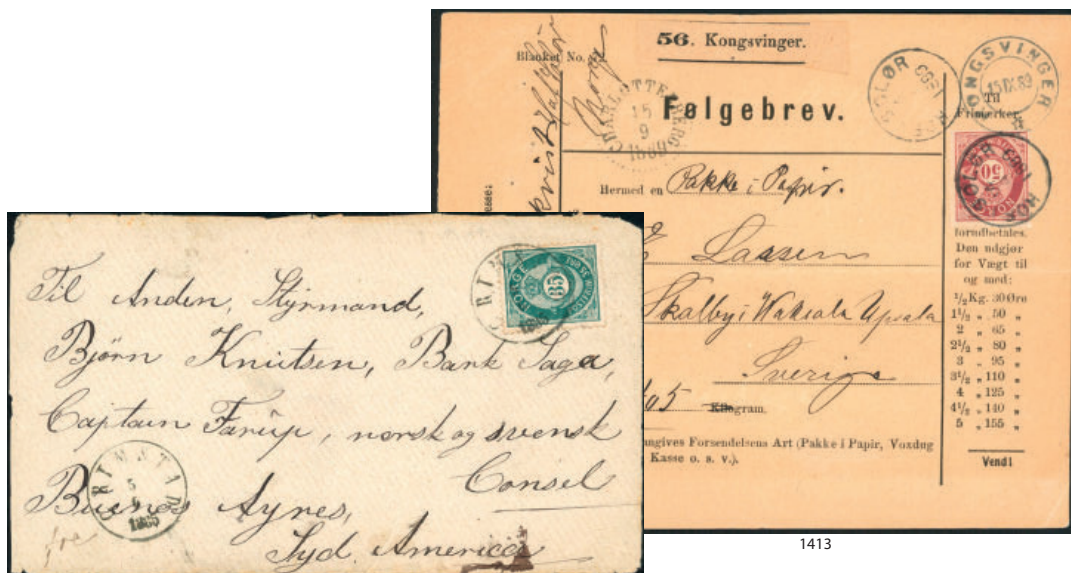 56. Kongsvinger.
Blanket No.
Norge
CHARLOTTENBERG
15
9
1889
SOLØR
1889
KONGSVINGER
15 IX 89
Følgebrev.
Til
Frimærker
50
SOLØR
Hermed en Pakke i Papir.
E Laasen
Skalby i Waksala Upsala
Sverige
Kilogram.
angives Forsendelsens Art (Pakke i Papir, Voxdug
Kasse o. s. v.).
forudbetales.
Den udgjør
for Vægt til
og med:
1/2 Kg. 30 Øre
1 1/2 „ 50 „
2 „ 65 „
2 1/2 „ 80 „
3 „ 95 „
3 1/2 „ 110 „
4 „ 125 „
4 1/2 „ 140 „
5 „ 155 „
Vend!
NORGE
35
Til Anden, Styrmand,
Bjørn Knutsen, Bark Saga,
Captain Farup, norsk og svensk
Consel
Buenos Ayres,
Syd. America
GRIMSTAD
5
1885
1413